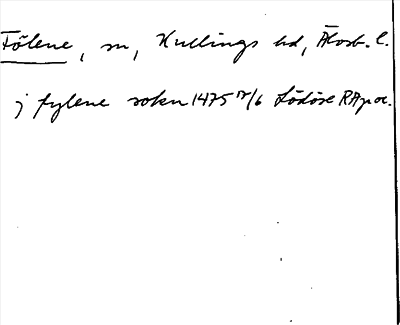 Fölene, sn, Kullings hd, Älvsb. l.
j fylene sokn 1475 17/6 Lödöse RApr.